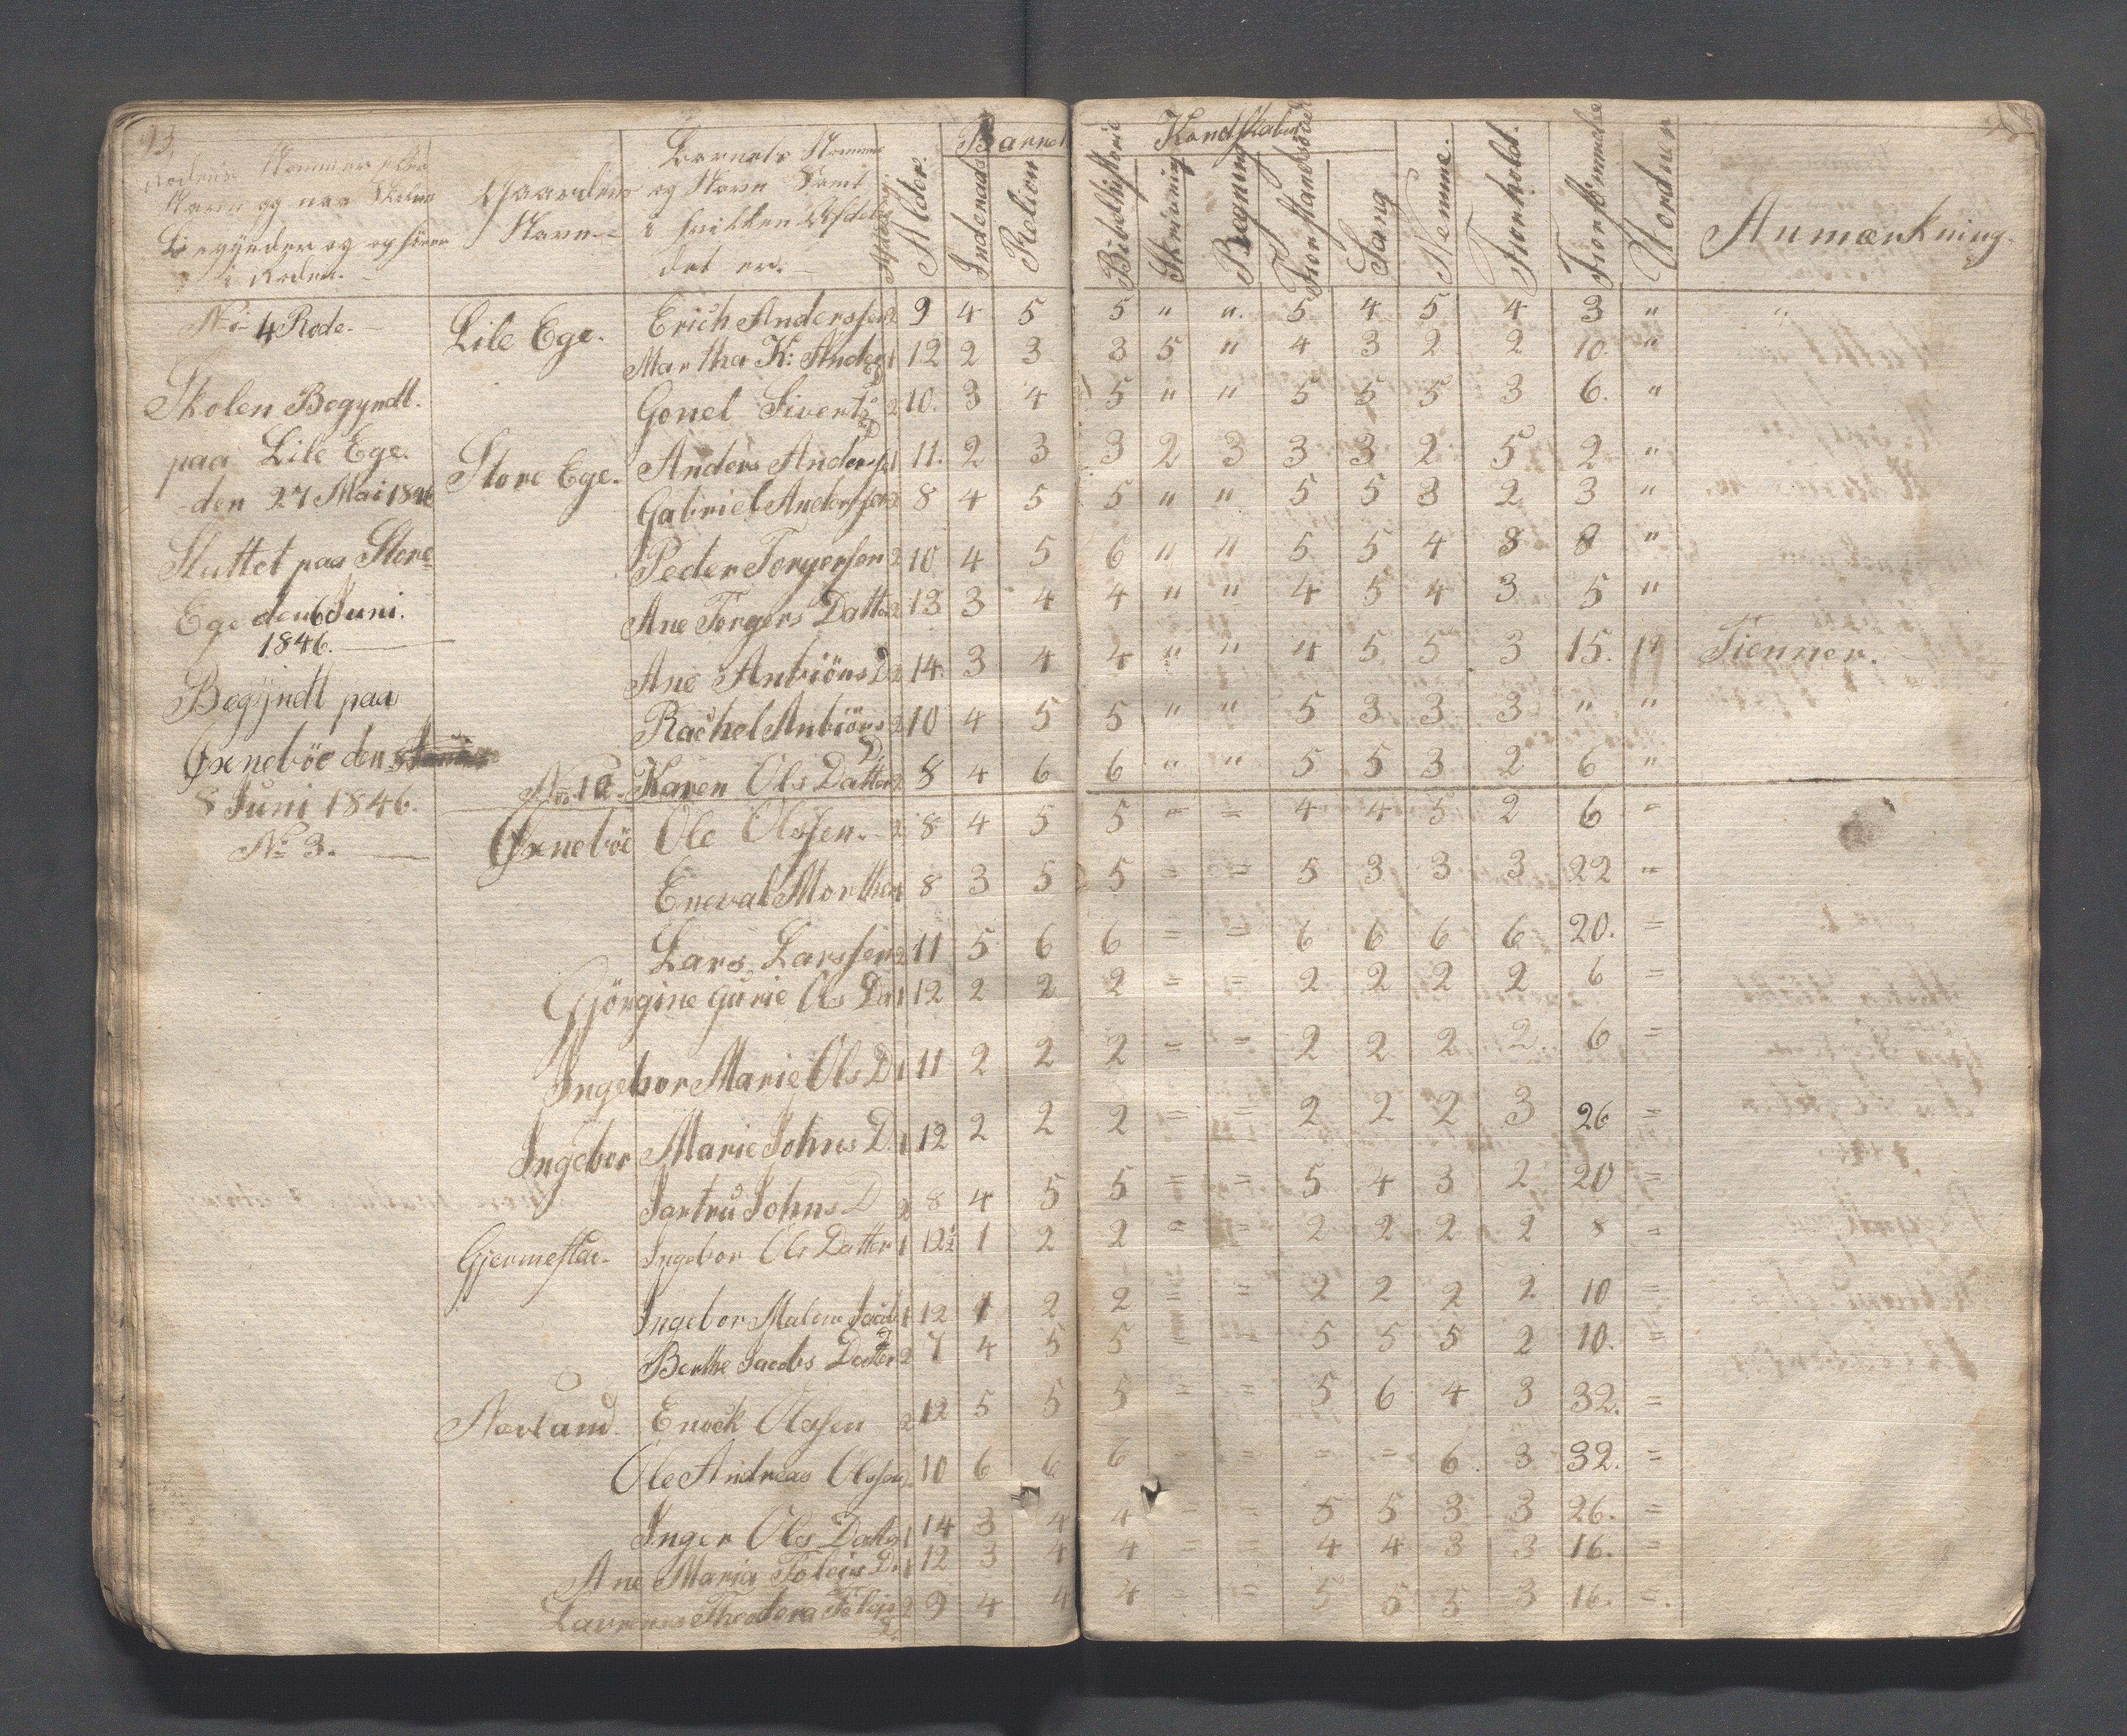 Rodens Nommer eller
Navn og naar Skolen
Begynder og ophörer
i Roden.
Gaardens
Navn
Barnets Nommer
og Navn Samt
i hvilken Afdeling
det er.
Afdeling.
Alder.
Barnets Kundskaber
Indenads
Relion
Bibelhistorie
Skrivning
Regning
Forstandsöv
Sang
Nemme.
Forhold.
Forsömmelse
Uorden
Anmærkning.
No 4 Rode. Lile Ege. Erich Anderssen 2 9 4 5 5 " " 5 4 5 4 3 " "
Martha K: Anders D 1 12 2 3 3 5 " 4 3 2 2 10. "
Skolen Begyndt. Gonel Siverts D 2 10. 3 4 5 " " 5 5 5 3 6. "
paa Lile Ege. Store Ege. Anders Anderssen 1 11. 2 3 3 2 3 3 3 2 5 2 "
den 27 Mai 1846 Gabriel Anderssen 2 8 4 5 5 " " 5 5 3 2 3 "
Sluttet paa Store Peder Torgersen 2 10 4 5 6 " " 5 5 4 8 8 "
Ege den 6 Juni. Ane Torgers Datter 2 13 3 4 4 " " 4 5 4 3 5 "
1846. Ane Anbiörns D 2 14. 3 4 4 " " 4 5 5 3 15. " Tienner.
Begyndt paa Rachel Anbiörns D 2 10 4 5 5 " " 5 3 3 3 " "
Oxneböe den
No. 10 Karen Ols Datter 2 8 4 6 6 " " 5 5 3 2 6 "
8 Juni 1846. Oxneböe Ole Olssen. 2 8 4 5 5 = = 4 4 5 2 6 =
No 3.
Eneval Morthen 1 8 3 5 5 = = 5 3 3 3 22 "
Lars Larssen 2 11 5 6 6 = = 6 6 6 6 20. =
Gjörgine Gurie Ols Da 1 12 2 2 2 = = 2 2 2 2 6 =
Ingebor Marie Ols D 1 11 2 2 2 = = 2 2 2 2. 6 =
Ingebor Marie Johns D. 1 12 2 2 2 = = 2 2 2 3 26 =
Jartru Johns D 2 8 4 5 5 = = 5 4 3 2 20 =
Gjermestad. Ingebor Ols Datter 1 12½ 1 2 2 = = 2 2 2 2 8 =
Ingebor Malene Jacobs D 1 12 1 2 2 = = 2 2 2 2 10 =
Berthe Jacobs Datter 2 7 4 5 5 = = 5 5 5 2 10. =
Nevland. Enock Olssen 2 12 5 5 5 = = 5 6 4 3 32. =
Ole Andreas Olssen 2 10 6 6 6 = = = = 6 3 32. =
Inger Ols Datter 1 14 3 4 4 = = 5 5 3 3 26. =
Ane Maria Toleis D. 1 12 3 4 4 = = 4 4 3 3 16. =
Theodora Toleis D. 2 9 4 4 4 = = 5 5 5 3 16. =.